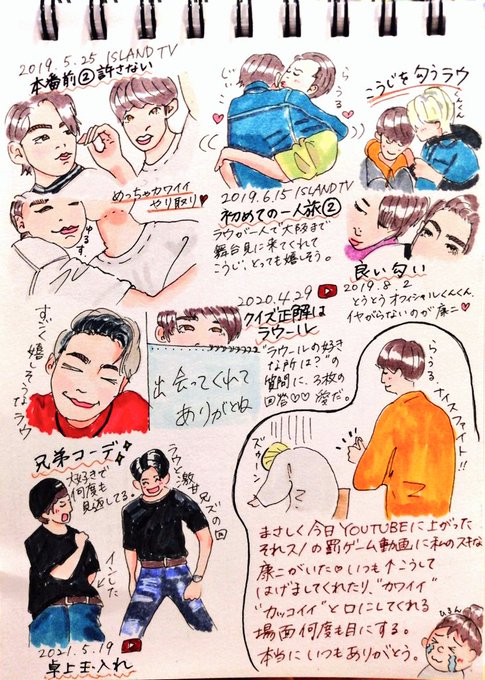 2019.5.25 ISLAND TV
本番前② 許さない
めっちゃカワイイ
やり取り♥
ゆるす
じ
らうる
2019.6.15 ISLAND TV
初めての一人旅②
ラウが一人で大阪まで
舞台見に来てくれて
こうじ、とっても嬉しそう。
こうじを匂うラウ
くんくん
良い匂い
2019.8.2
とうとうオフィシャルくんくん。
イヤがらないのが康二♥
すごく嬉しそうなラウ
2020.4.29
クイズ正解は
ラウール
"ラウールの好き
な所は?"の
質問に、3枚の
回答♡♡愛だ。
出会ってくれて
ありがとね
兄弟コーデ
大好きで
何度も
見返してる。
ラウと激甘兄ズの回
インした
2021.5.19
卓上玉入れ
らうる、ナイスファイト!!
ズゥーン
まさしく今日YOUTUBEに上がった
それスノの罰ゲーム動画に私のスキな
康二がいた♡いつも↑こうして
はげましてくれたり、"カワイイ"
"カッコイイ"と口にしてくれる
場面何度も目にする。
本当にいつもありがとう。